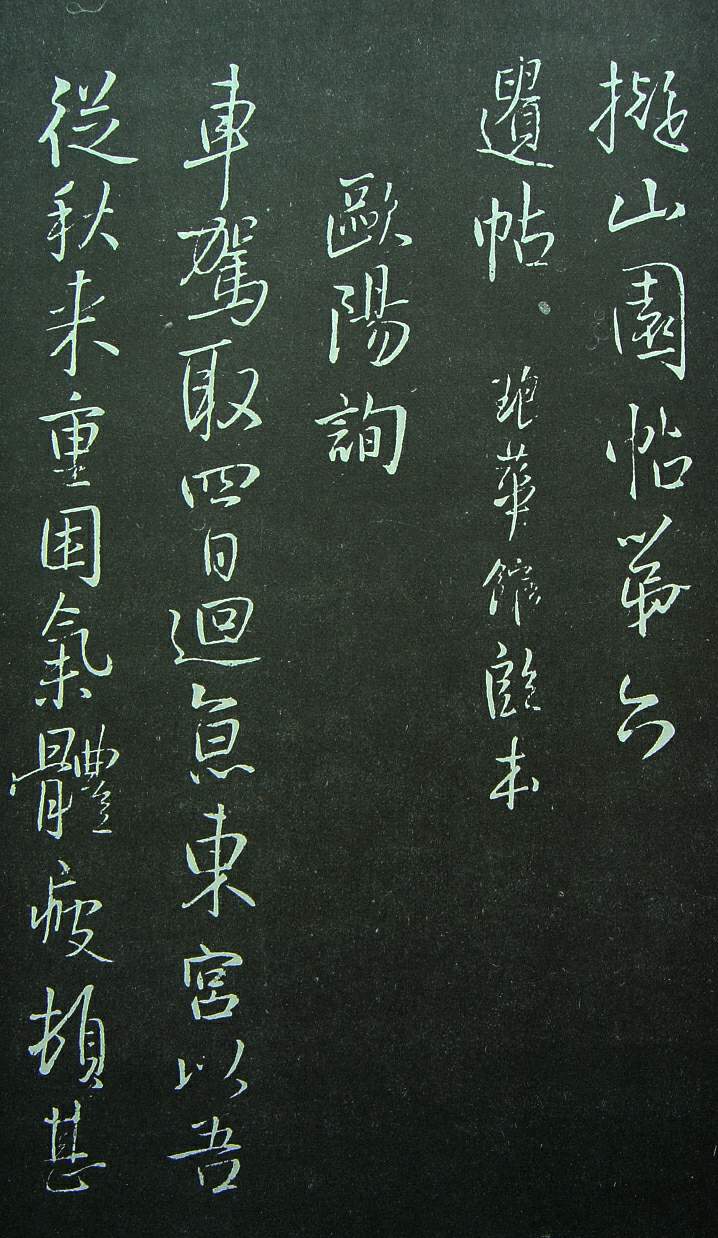 擬山園帖第六
遺帖 琅華館臨本
歐陽詢
車駕取四日迴息東宮以吾
從秋来重困氣體疲頓甚